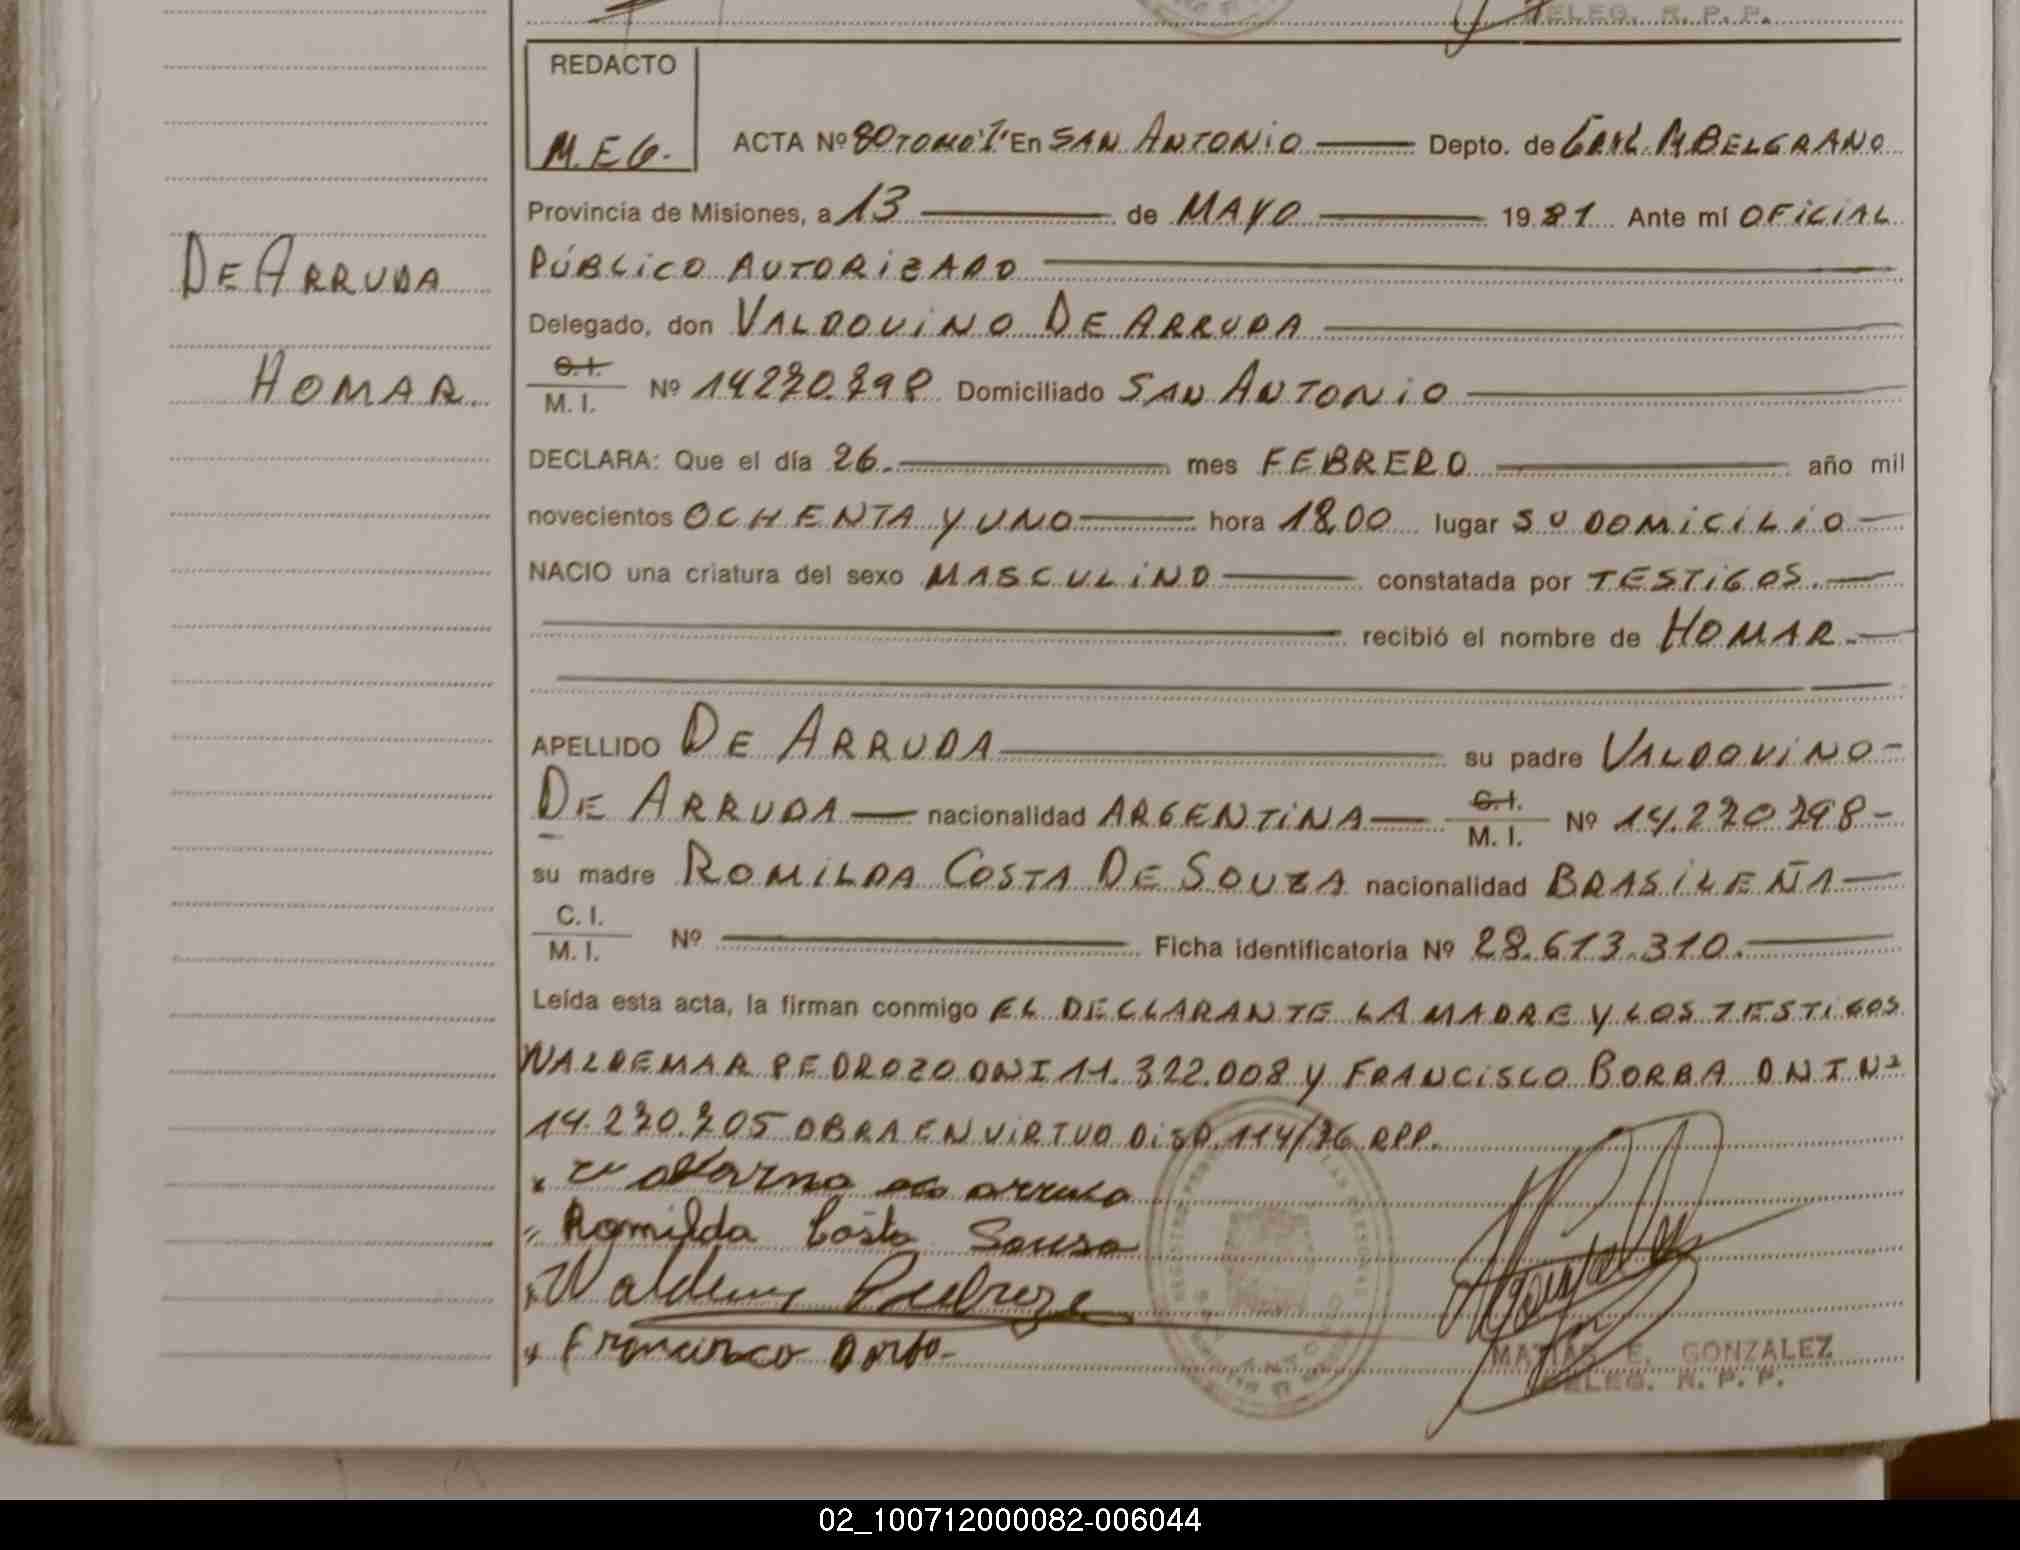 DELEG. R. P. P.
REDACTO
M.E.G.
ACTA Nº 80 TOMO "1" En SAN ANTONIO Depto. de GRAL M. BELGRANO
Provincia de Misiones, a 13 de MAYO 1981 Ante mí OFICIAL
PÚBLICO AUTORIZADO
Delegado, don VALDOVINO DE ARRUDA
C.I.
M. I. Nº 14270798 Domiciliado SAN ANTONIO
DE ARRUDA
HOMAR
DECLARA: Que el día 26. mes FEBRERO año mil
novecientos OCHENTA Y UNO hora 18,00 lugar SU DOMICILIO
NACIO una criatura del sexo MASCULINO constatada por TESTIGOS.
recibió el nombre de HOMAR
APELLIDO DE ARRUDA su padre VALDOVINO
DE ARRUDA nacionalidad ARGENTINA C.I. M. I. Nº 14.270798
su madre ROMILDA COSTA DE SOUZA nacionalidad BRASILEÑA
C. I.
M. I. Nº Ficha identificatoria Nº 28.613.310.
Leída esta acta, la firman conmigo EL DECLARANTE LA MADRE Y LOS TESTIGOS
WALDEMAR PEDROZO DNI 11.322.008 Y FRANCISCO BORBA DNI Nº
14.270.705 OBRA EN VIRTUD DISP. 114/76 RPP.
Romilda Costa Sousa
Waldemar Pedrozo
Francisco
MATIAS E. GONZALEZ
DELEG. R. P. P.
02_100712000082-006044